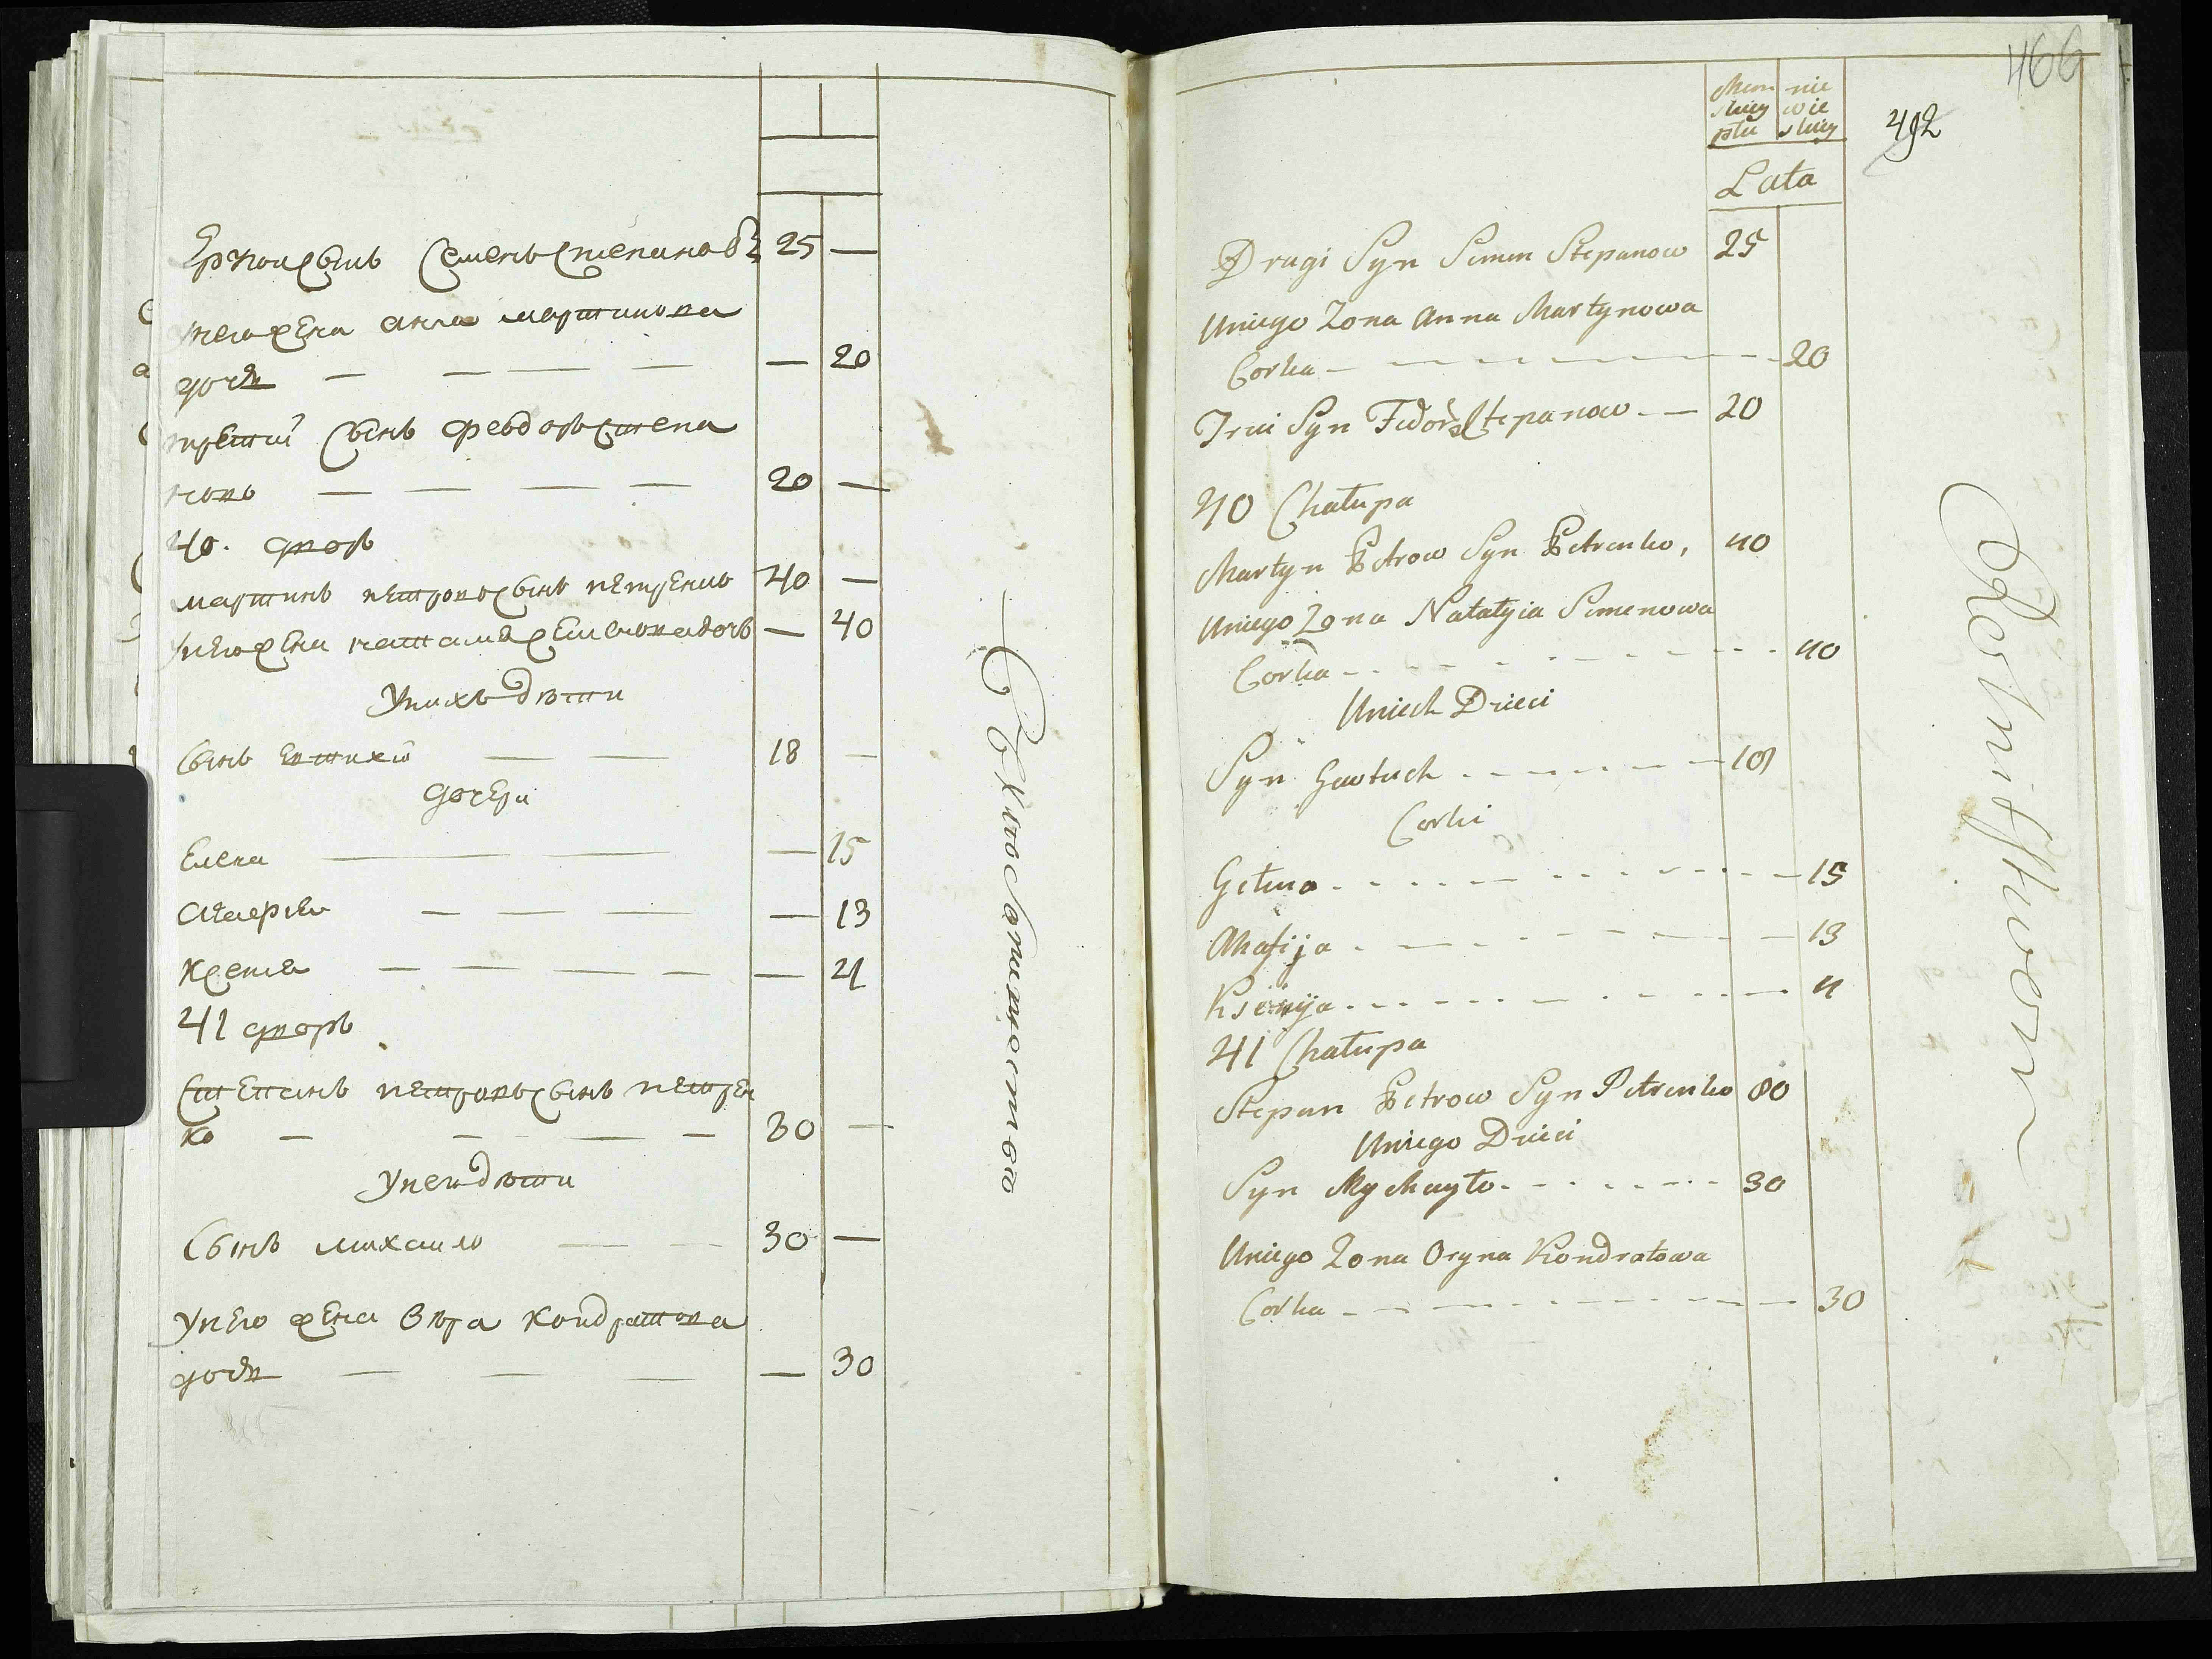 Семенъ Степановъ 25 —
унего жена анна мартинова
дочь — — — — — 20
третий сынъ феодоръ степа
новъ — — — — 20 —
40. дворъ
мартинъ петровъ сынъ петренко 40 —
унего жена наталия семенова дочь — 40
Унихъ дѣти
Сынъ евтихій — — 18 —
дочери
Елена — — — 15
агафия — — — — 13
Ксения — — — — — 4
41 дворъ
Степанъ петровъ сынъ петрен
ко — — — — 80 —
Унего дѣти
Сынъ михаило — — 30 —
Унего жена Вѣра Кондратова
дочь — — — — 30
466
492
Męn nie
skiey wie
płci skiey
Lata
Drugi Syn Semen Stepanow 25
Uniego Zona Anna Martynowa
Corka — 20
Trzi Syn Fedor Stepanow — 20
40 Chałupa
Martyn Petrow Syn Petrenko, 40
Uniego Zona Natałyia Semenowa
Corka — 40
Uniech Dzieci
Syn Gewtuch — 18
Corki
Gełena — 15
Ahafija — 13
Ksienija — 4
41 Chałupa
Stepan Petrow Syn Petrenko 80
Uniego Dzieci
Syn Mychayło — 30
Uniego Zona Oryna Kondratowa
Corka — 30